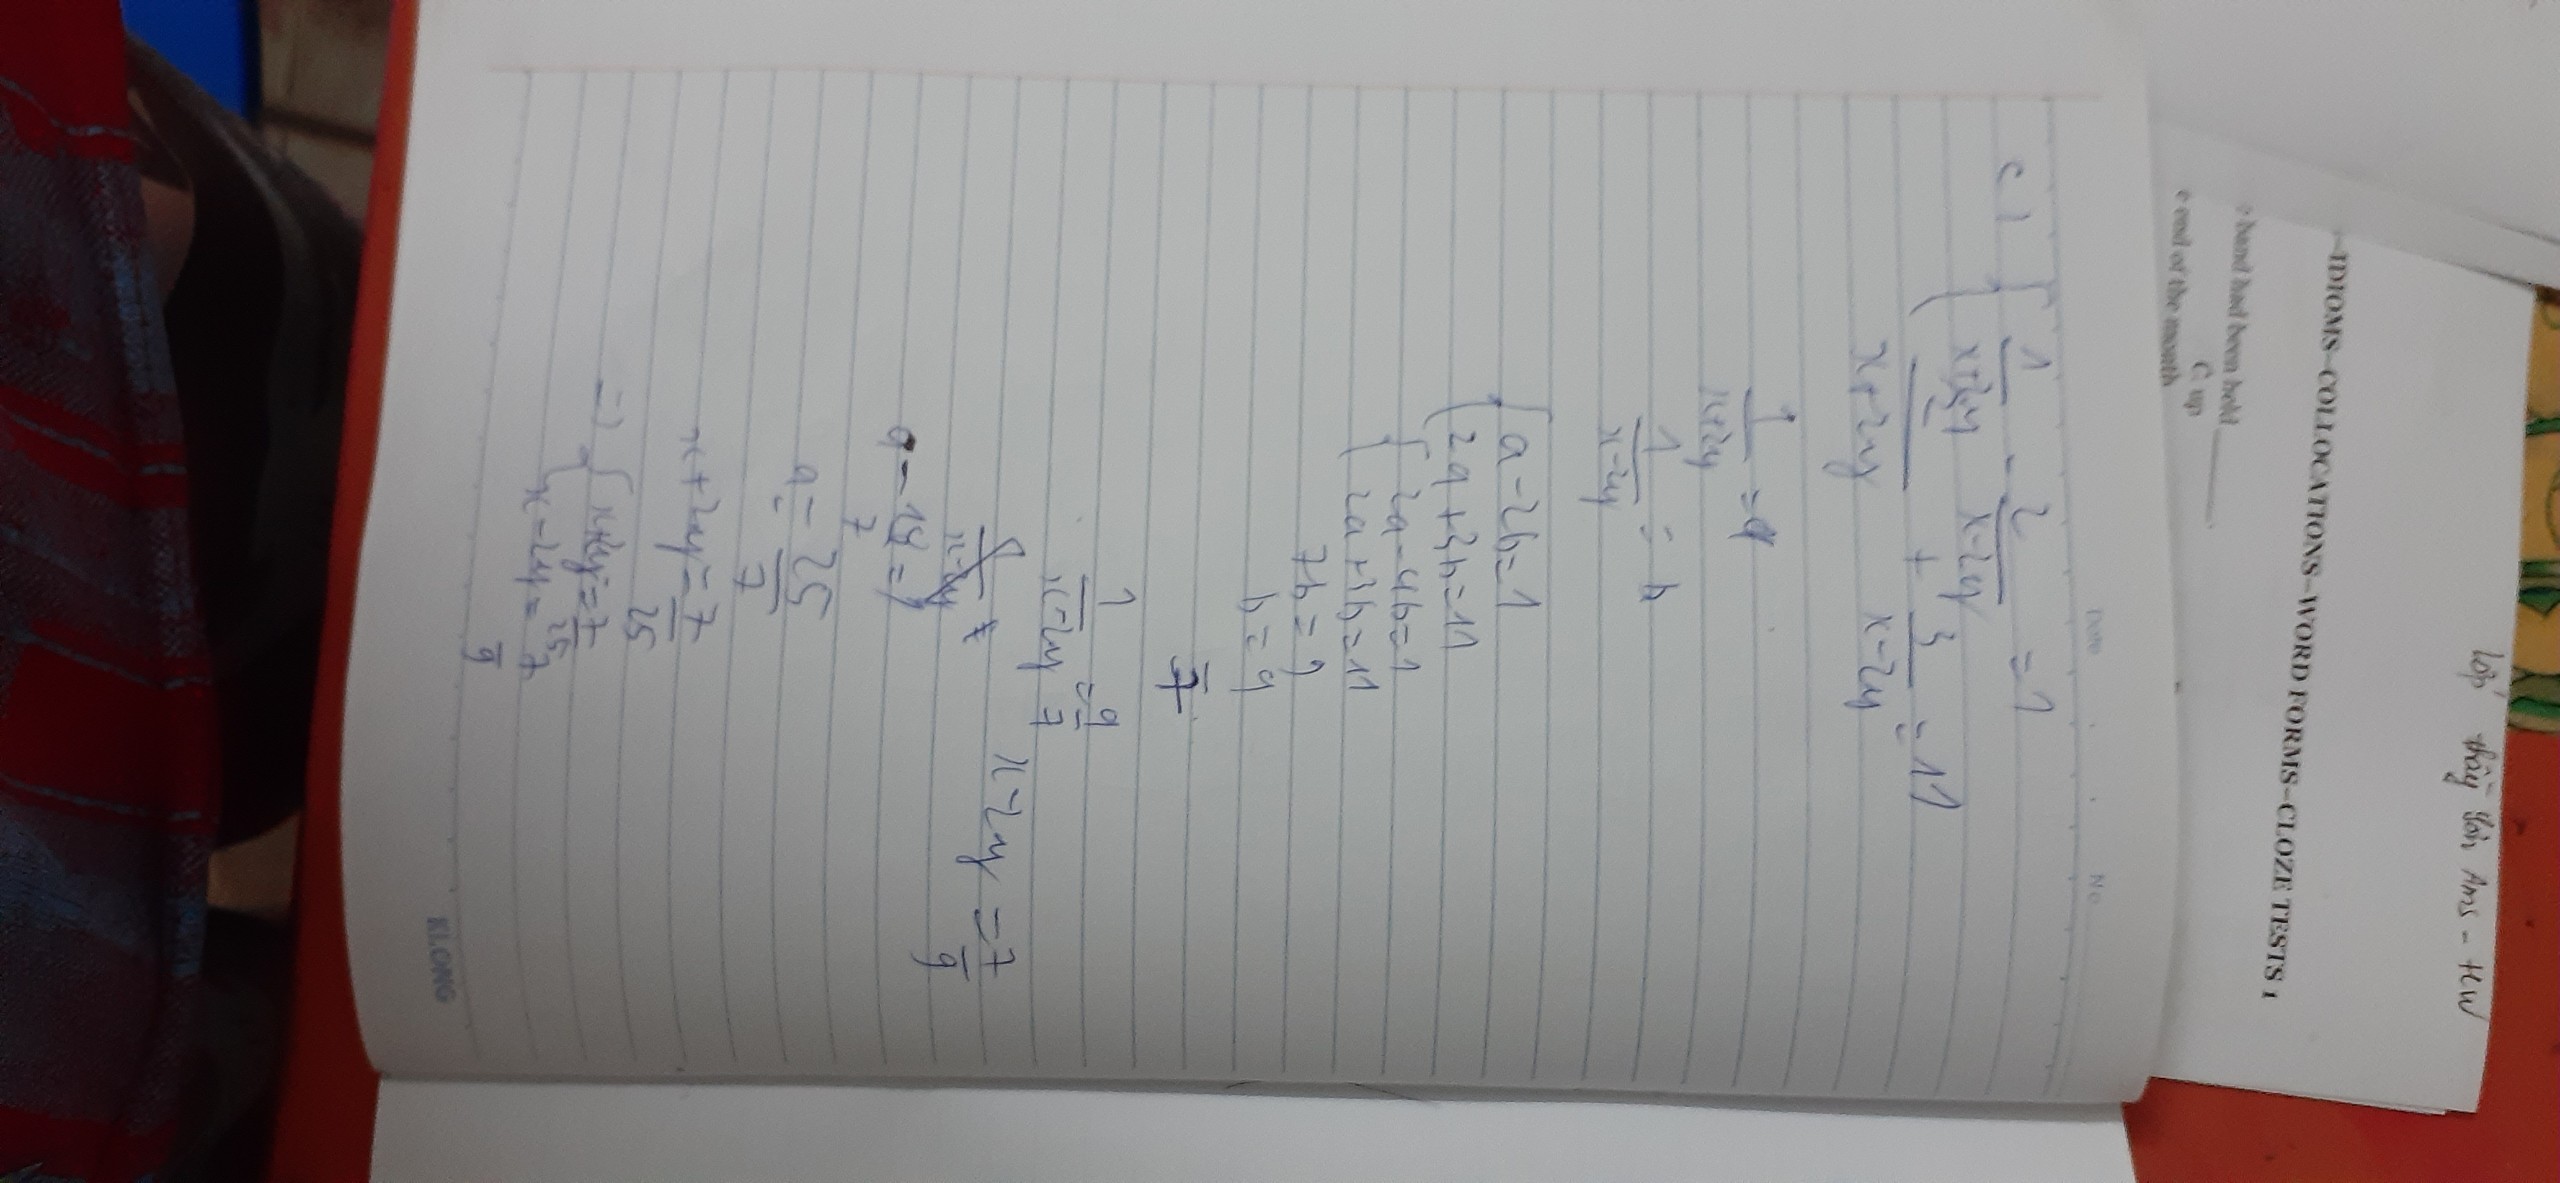 Lớp thầy Sơn Ams - HW
-IDIOMS-COLLOCATIONS-WORD FORMS-CLOZE TESTS 1
band had been held ______.
C. up
e end of the month
Date No
c) { 1/(x+2y) - 2/(x-2y) = 1
2/(x+2y) + 3/(x-2y) = 11
1/(x+2y) = a
1/(x-2y) = b
{ a-2b=1
2a+3b=11
{ 2a-4b=1
2a+3b=11
7b=9
b=9/7
1/(x-2y) = 9/7
x-2y = 7/9
a - 18/7 = 1
a = 25/7
x+2y = 7/25
=> { x+2y = 7/25
x-2y = 7/9
KLONG